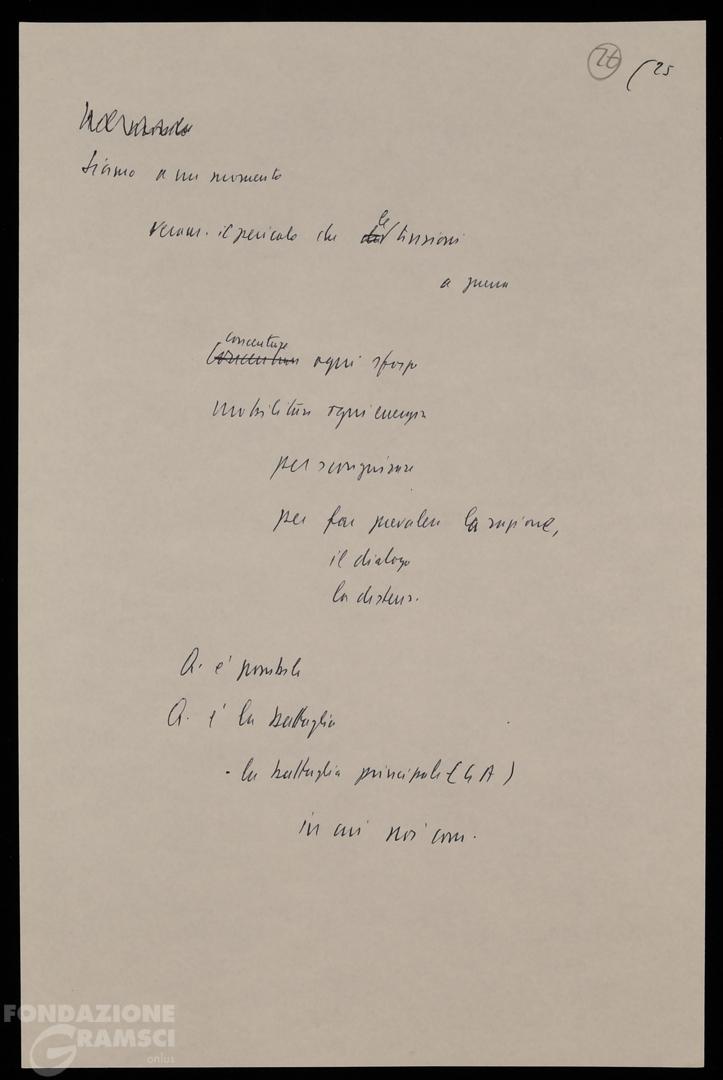 26 (25
Siamo a un momento
veram. il pericolo che le tensioni
a guerra
concentrare
ogni sforzo
mobilitare ogni energia
per scongiurare
per far prevalere la ragione,
il dialogo
la distens.
Q. è possibile
Q. è la battaglia
- la battaglia principale (GA)
in cui noi com.
FONDAZIONE
GRAMSCI
onlus